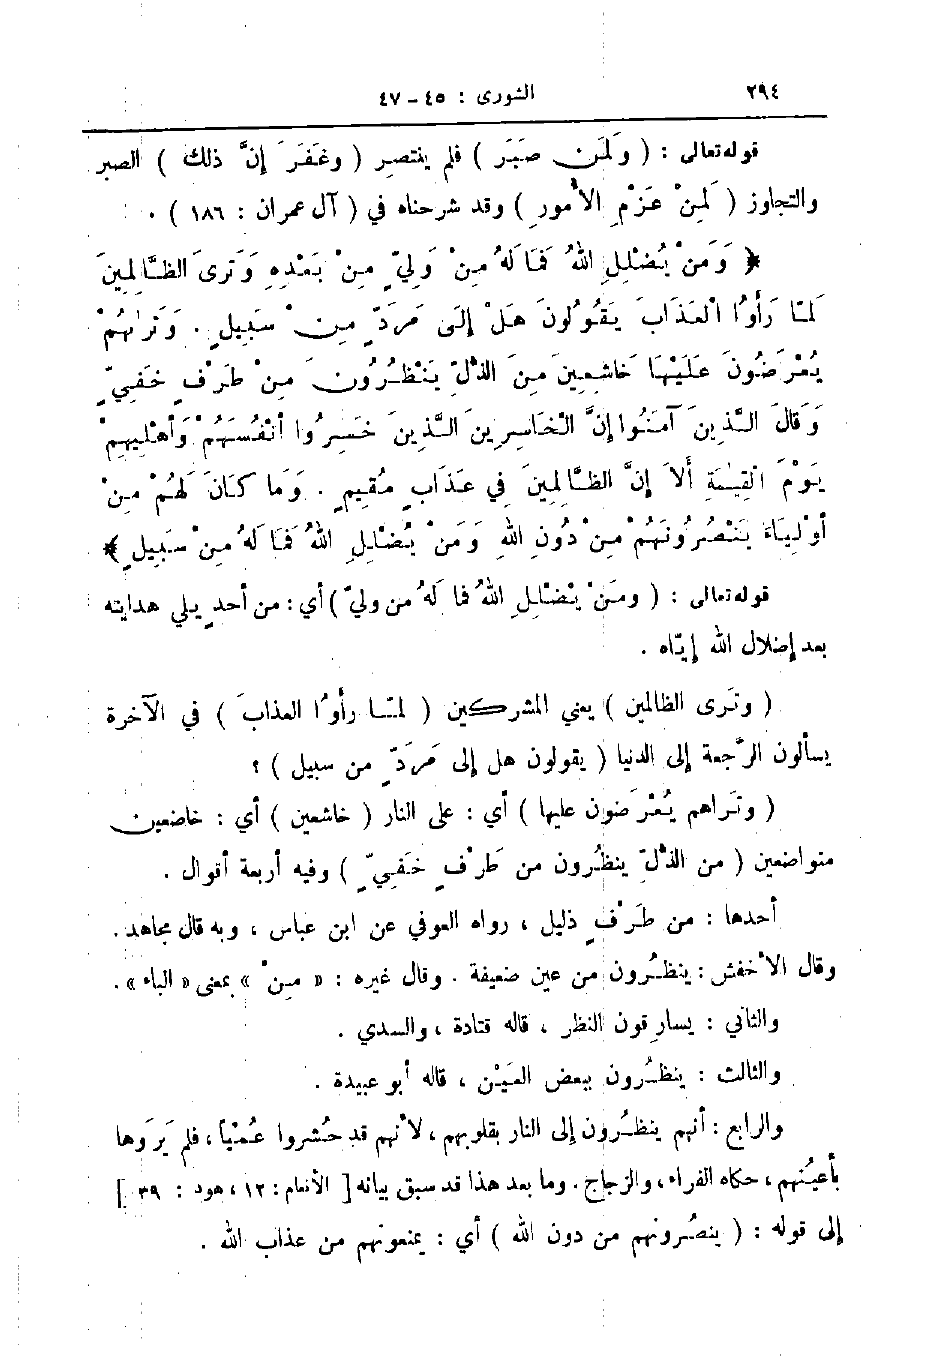 ٢٩٤ الشورى : ٤٥ – ٤٧
قوله تعالى : ( وَلَمَن صَبَرَ ) فلم ينتصر ( وغَفَرَ إنَّ ذلك ) الصبر
والتجاوز ( لَمِنْ عَزْمِ الأُمورِ ) وقد شرحناه في ( آل عمران : ١٨٦ ) .
﴿ وَمَنْ يُضْلِلِ اللهُ فَمَا لَهُ مِنْ وَلِيٍّ مِنْ بَعْدِهِ وَتَرىَ الظَّالِمِينَ
لَمَّا رَأَوُا الْعَذَابَ يَقُولُونَ هَلْ إِلَى مَرَدٍّ مِنْ سَبِيلٍ . وَتَرٰاهُمْ
يُعْرَضُونَ عَلَيْهَا خَاشِعِينَ مِنَ الذُّلِّ يَنْظُرُونَ مِنْ طَرْفٍ خَفِيٍّ
وَقَالَ الَّذِينَ آمَنُوا إِنَّ الْخَاسِرِينَ الَّذِينَ خَسِرُوا أَنْفُسَهُمْ وَأَهْلِيهِمْ
يَوْمَ الْقِيٰمَةِ أَلاَ إِنَّ الظَّالِمِينَ فِي عَذَابٍ مُقِيمٍ . وَمَا كَانَ لَهُمْ مِنْ
أَوْلِيَاءَ يَنْصُرُونَهُمْ مِنْ دُونِ اللهِ وَمَنْ يُضْلِلِ اللهُ فَمَا لَهُ مِنْ سَبِيلٍ ﴾
قوله تعالى : ( ومَنْ يُضْلِلِ اللهُ فما لَهُ من وليٍّ ) أي : من أحدٍ يلي هدايته
بعد إضلال الله إيّاه .
( وتَرى الظالمين ) يعني المشركين ( لمّا رأَوُا العذابَ ) في الآخرة
يسألون الرَّجعة إلى الدنيا ( يقولون هل إلى مَرَدٍّ من سبيل ) ؟
( وتَراهم يُعْرَضون عليها ) أي : على النار ( خاشعين ) أي : خاضعين
متواضعين ( من الذُّلِّ ينظُرون من طَرْفٍ خَفيٍّ ) وفيه أربعة أقوال .
أحدها : من طَرْفٍ ذليل ، رواه العوفي عن ابن عباس ، وبه قال مجاهد .
وقال الأخفش : ينظُرون من عين ضعيفة . وقال غيره : « مِنْ » بمعنى « الباء » .
والثاني : يسارِقون النظر ، قاله قتادة ، والسدي .
والثالث : ينظُرون ببعض العَيْن ، قاله أبو عبيدة .
والرابع : أنهم ينظُرون إلى النار بقلوبهم ، لأنهم قد حُشروا عُمْياً ، فلم يَرَوها
بأعيُنهم ، حكاه الفراء ، والزجاج . وما بعد هذا قد سبق بيانه [ الأنعام : ١٢ ، هود : ٣٩ ]
إلى قوله : ( ينصُرونهم من دون الله ) أي : يمنعونهم من عذاب الله .